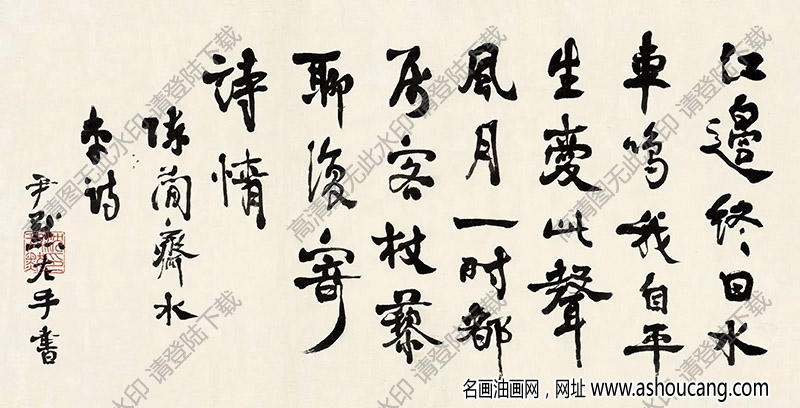 江邊終日水
車鳴我自平
生愛此聲
風月一時都
屬客杖藜
聊復寄
詩情
陳簡齋水
車詩
尹默左手書
高清图无此水印 请登陆下载
名画油画网，网址 www.ashoucang.com